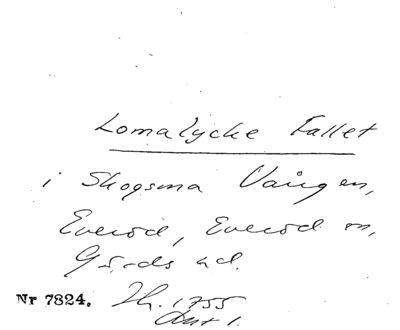 Lomalycke Fallet
i Skogsma Vången,
Everöd, Everöd sn,
Gärds hd.
Nr 7824. Ik. 1755
Akt 1.